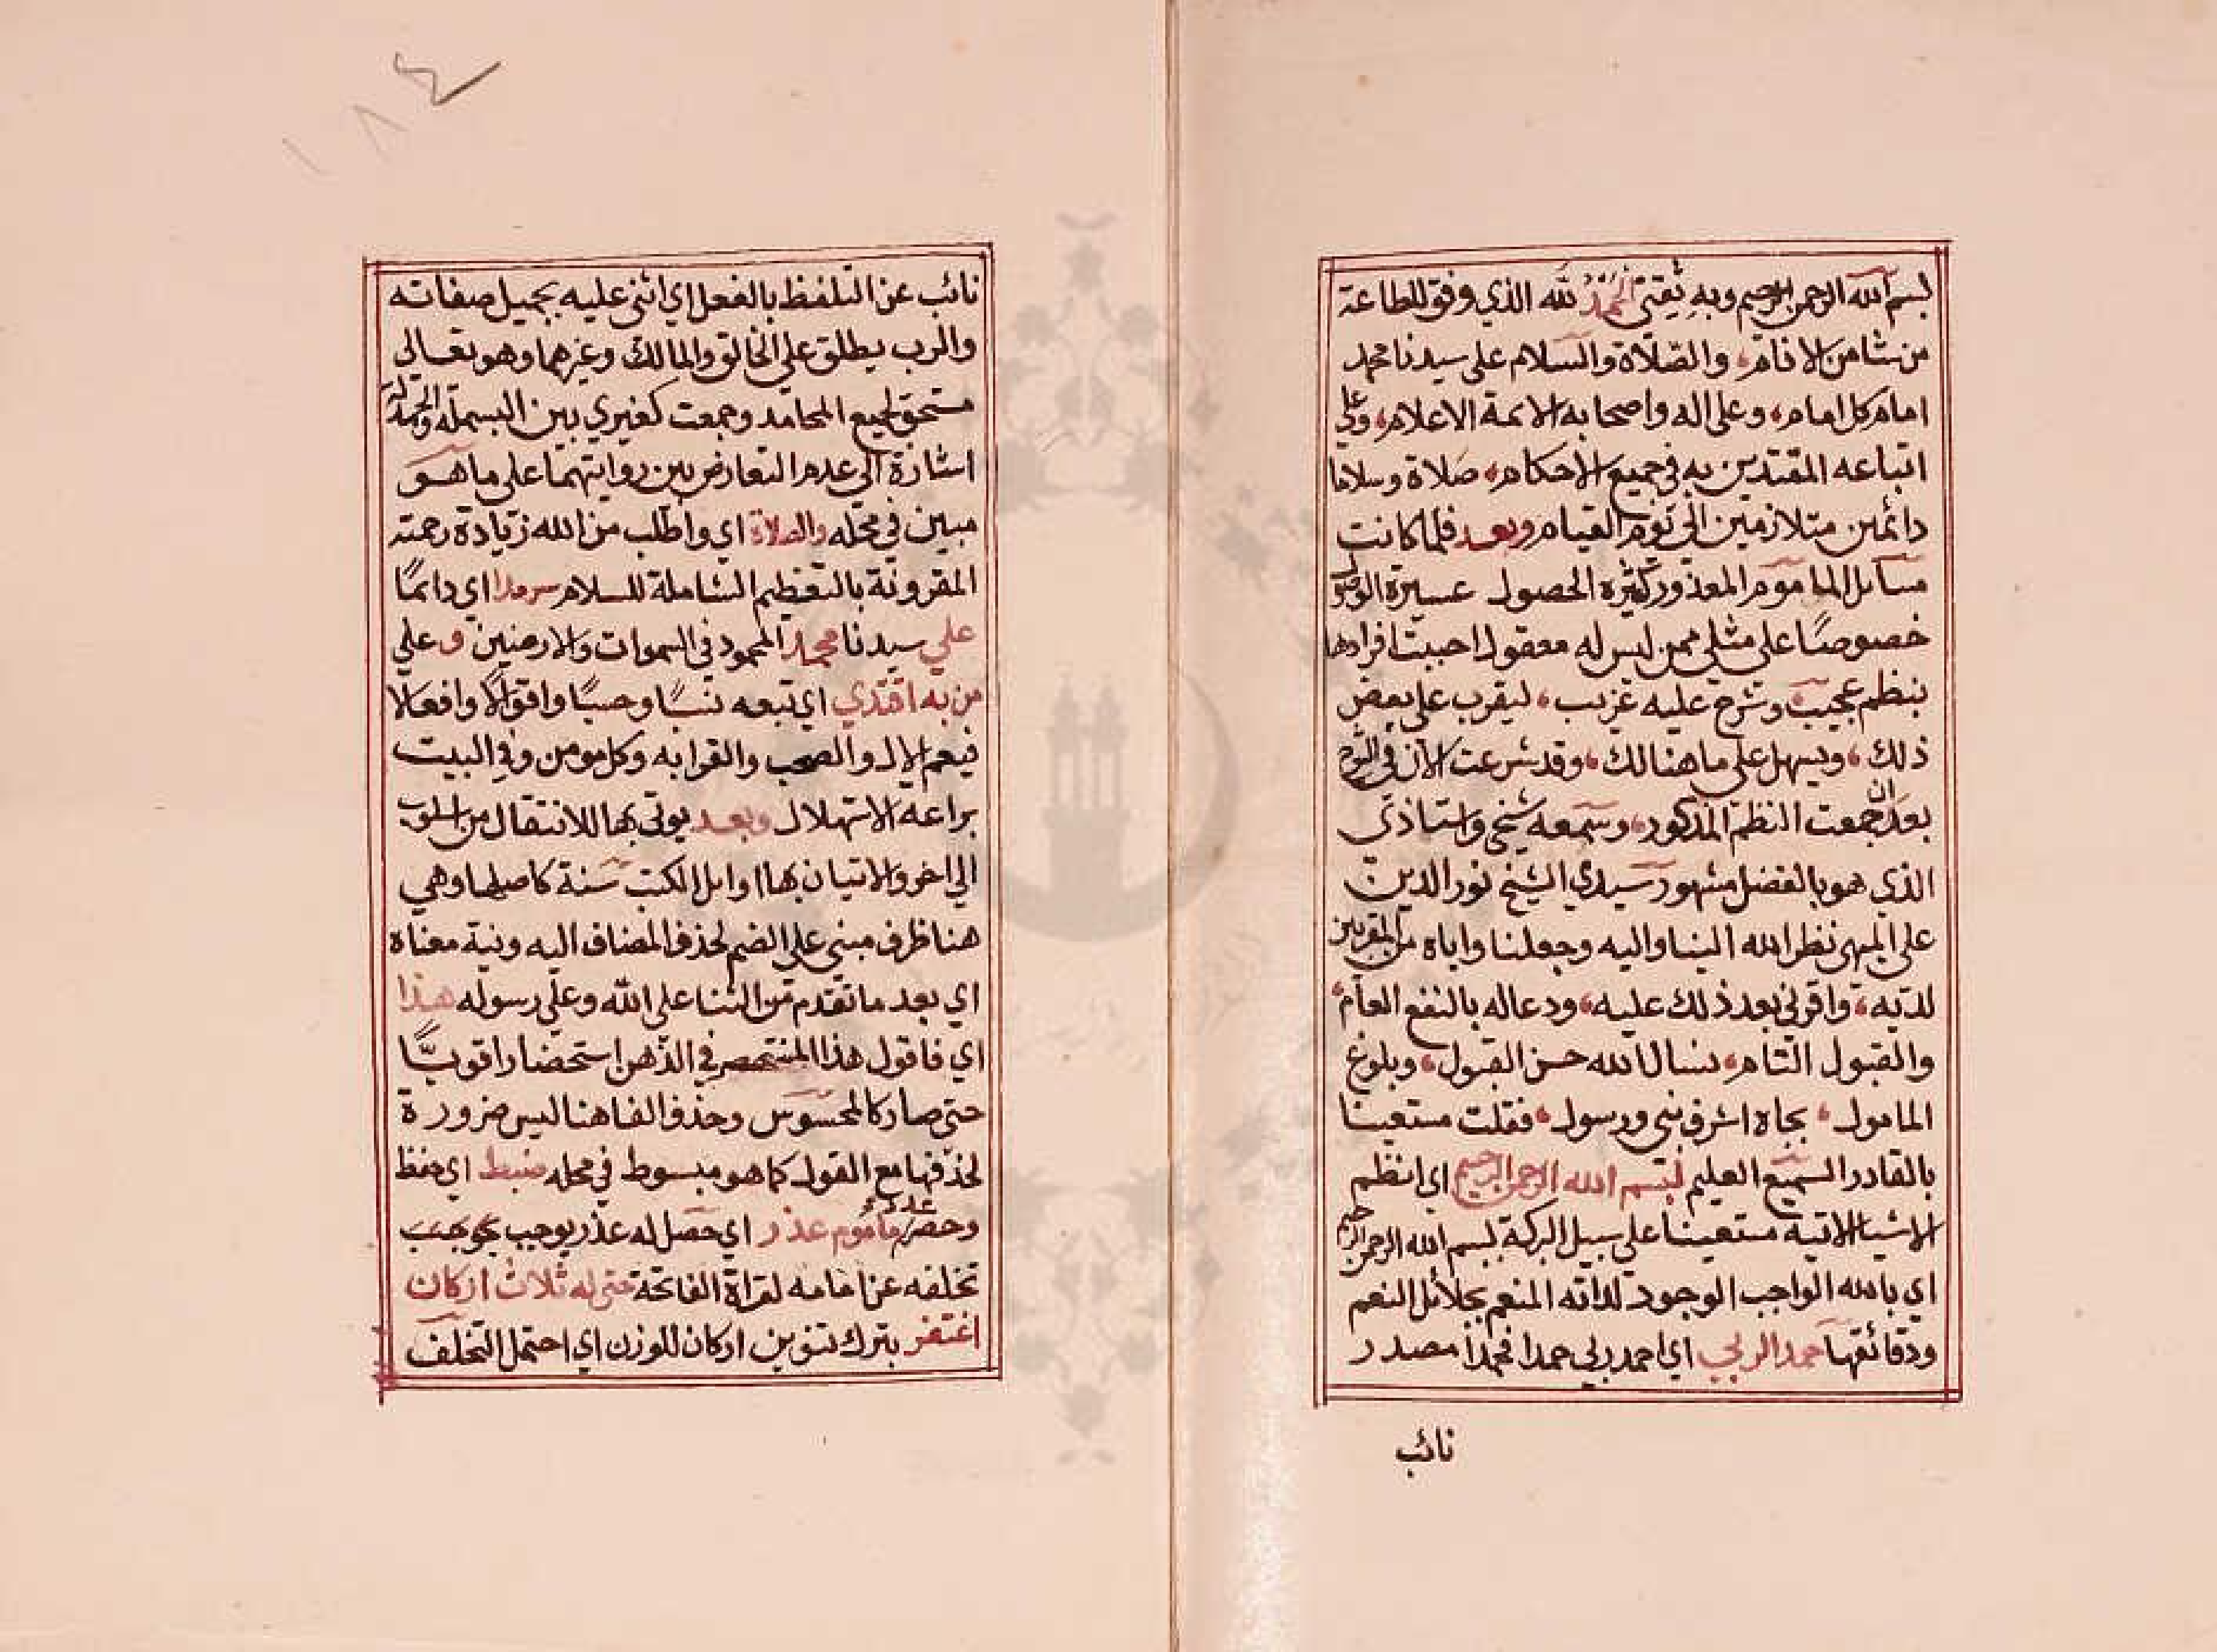 بسم الله الرحمن الرحيم وبه ثقتي الحمد لله الذي وفق للطاعة
من شا من الانام، والصلاة والسلام على سيدنا محمد
امام كل امام، وعلى اله واصحابه الائمة الاعلام، وعلى
اتباعه المقتدين به في جميع الاحكام، صلاة وسلاما
دائمين متلازمين الى يوم القيام وبعد فلما كانت
مسائل الماموم المعذور كثيرة الحصول عسيرة الوصول
خصوصًا على مثلي ممن ليس له معقول احببت افرادها
بنظم عجيب وشرح عليه غريب، ليقرب على بعض
ذلك، ويسهل على ما هنالك، وقد شرعت الان في الشرح
بعد ان جمعت النظم المذكور، وسمعه شيخي واستاذي
الذي هو بالفضل مشهور سيدي الشيخ نور الدين
علي الميهي نظر الله الينا واليه وجعلنا واياه من المقربين
لديه، واقرني بعد ذلك عليه، ودعا له بالنفع العام،
والقبول التام، نسال الله حسن القبول، وبلوغ
المامول، بجاه اشرف نبي ورسول، فقلت مستعينا
بالقادر السميع العليم بسم الله الرحمن الرحيم اي انظم
الاشيا الاتية مستعينا على سبيل البركة ببسم الله الرحمن الرحيم
اي بالله الواجب الوجود لذاته المنعم بجلائل النعم
ودقائقها حمدا لربي اي احمد ربي حمدا فحمدا مصدر
نائب
١٨٤
نائب عن التلفظ بالفعل اي اثني عليه بجميل صفاته
والرب يطلق على الخالق والمالك وغيرهما وهو تعالى
مستحق لجميع المحامد وجمعت كغيري بين البسملة والحمدلة
اشارة الى عدم التعارض بين روايتهما على ما هو
مبين في محله والصلاة اي واطلب من الله زيادة رحمته
المقرونة بالتعظيم الشاملة للسلام سرمدا اي دائمًا
على سيدنا محمد المحمود في السموات والارضين وعلي
من به اقتدي اي تبعه نسبًا وصحبًا واقوالًا وافعالا
فيعم الال والصحب والقرابه وكل مومن وفي البيت
براعة الاستهلال وبعد يوتى بها للانتقال من اسلوب
الى اخر والاتيان بها اوايل الكتب سنة كاصلها وهي
هنا ظرف مبني على الضم لحذف المضاف اليه ونية معناه
اي بعد ما تقدم من الثنا على الله وعلى رسوله هذا
اي فاقول هذا المستحضر في الذهن استحضارا قويًّا
حتى صار كالمحسوس وحذف الفا هنا ليس ضرورة
لحذفها مع القول كما هو مبسوط في محله ضبط اي حفظ
وحصر ماموم عذر اي حصل له عذر يوجب
تخلفه عن امامه لقراة الفاتحة حتى له ثلاث اركان
اغتفر بترك تنوين اركان للوزن اي احتمل التخلف